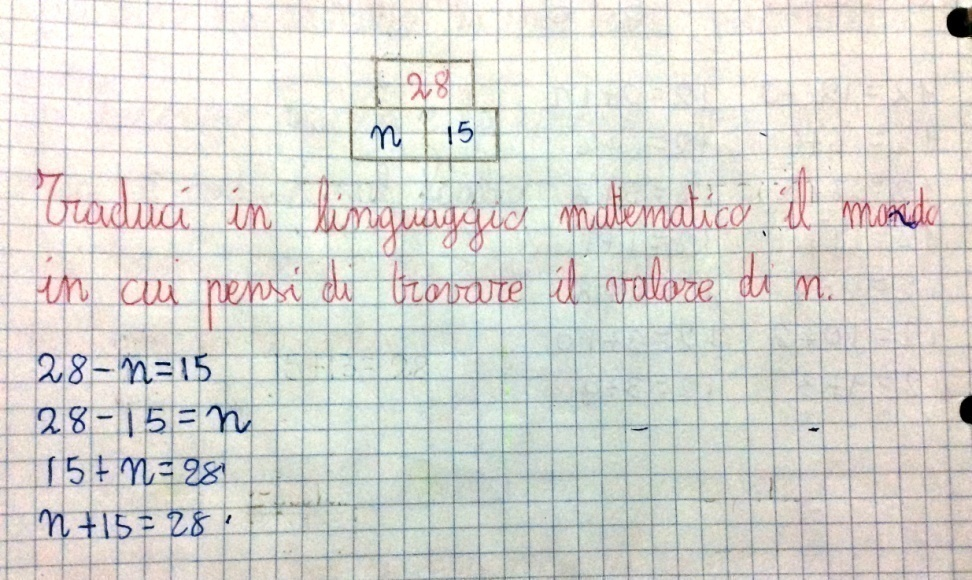 28
n 15
Traduci in linguaggio matematico il mondo
in cui pensi di trovare il valore di n.
28-n=15
28-15=n
15+n=28
n+15=28